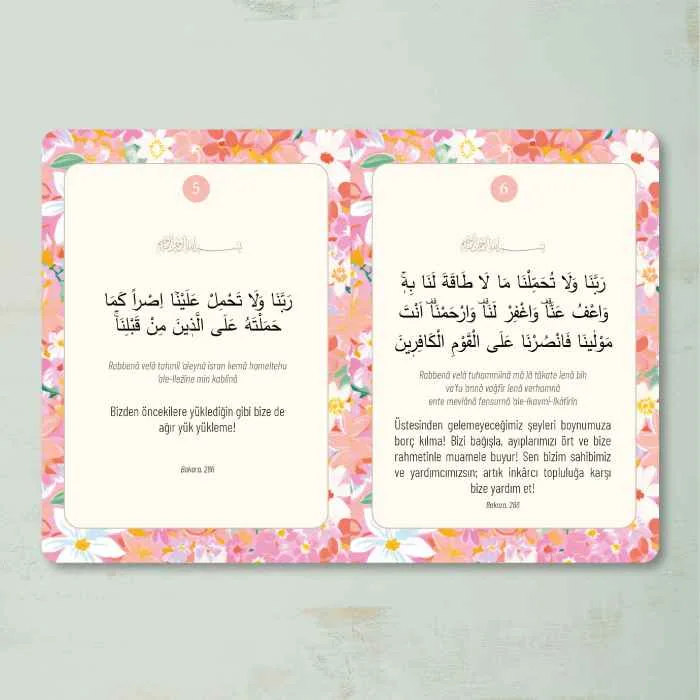 5
رَبَّنَا وَلَا تَحْمِلْ عَلَيْنَٓا اِصْراً كَمَا
حَمَلْتَهُ عَلَى الَّذ۪ينَ مِنْ قَبْلِنَاۚ
Rabbenâ velâ tahmil 'aleynâ isran kemâ hameltehu
'ale-llezîne min kablinâ
Bizden öncekilere yüklediğin gibi bize de
ağır yük yükleme!
Bakara, 286
6
بِسْمِ اللهِ الرَّحْمٰنِ الرَّحِيمِ
رَبَّنَا وَلَا تُحَمِّلْنَا مَا لَا طَاقَةَ لَنَا بِه۪ۚ
وَاعْفُ عَنَّا۠ وَاغْفِرْ لَنَا۠ وَارْحَمْنَا۠ اَنْتَ
مَوْلٰينَا فَانْصُرْنَا عَلَى الْقَوْمِ الْكَافِر۪ينَ
Rabbenâ velâ tuhammilnâ mâ lâ tâkate lenâ bih
va'fu 'annâ vağfir lenâ verhamnâ
ente mevlânâ fensurnâ 'ale-lkavmi-lkâfirîn
Üstesinden gelemeyeceğimiz şeyleri boynumuza
borç kılma! Bizi bağışla, ayıplarımızı ört ve bize
rahmetinle muamele buyur! Sen bizim sahibimiz
ve yardımcımızsın; artık inkârcı topluluğa karşı
bize yardım et!
Bakara, 286